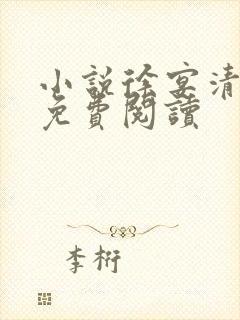 小說徐宴清
免費閱讀
李桁